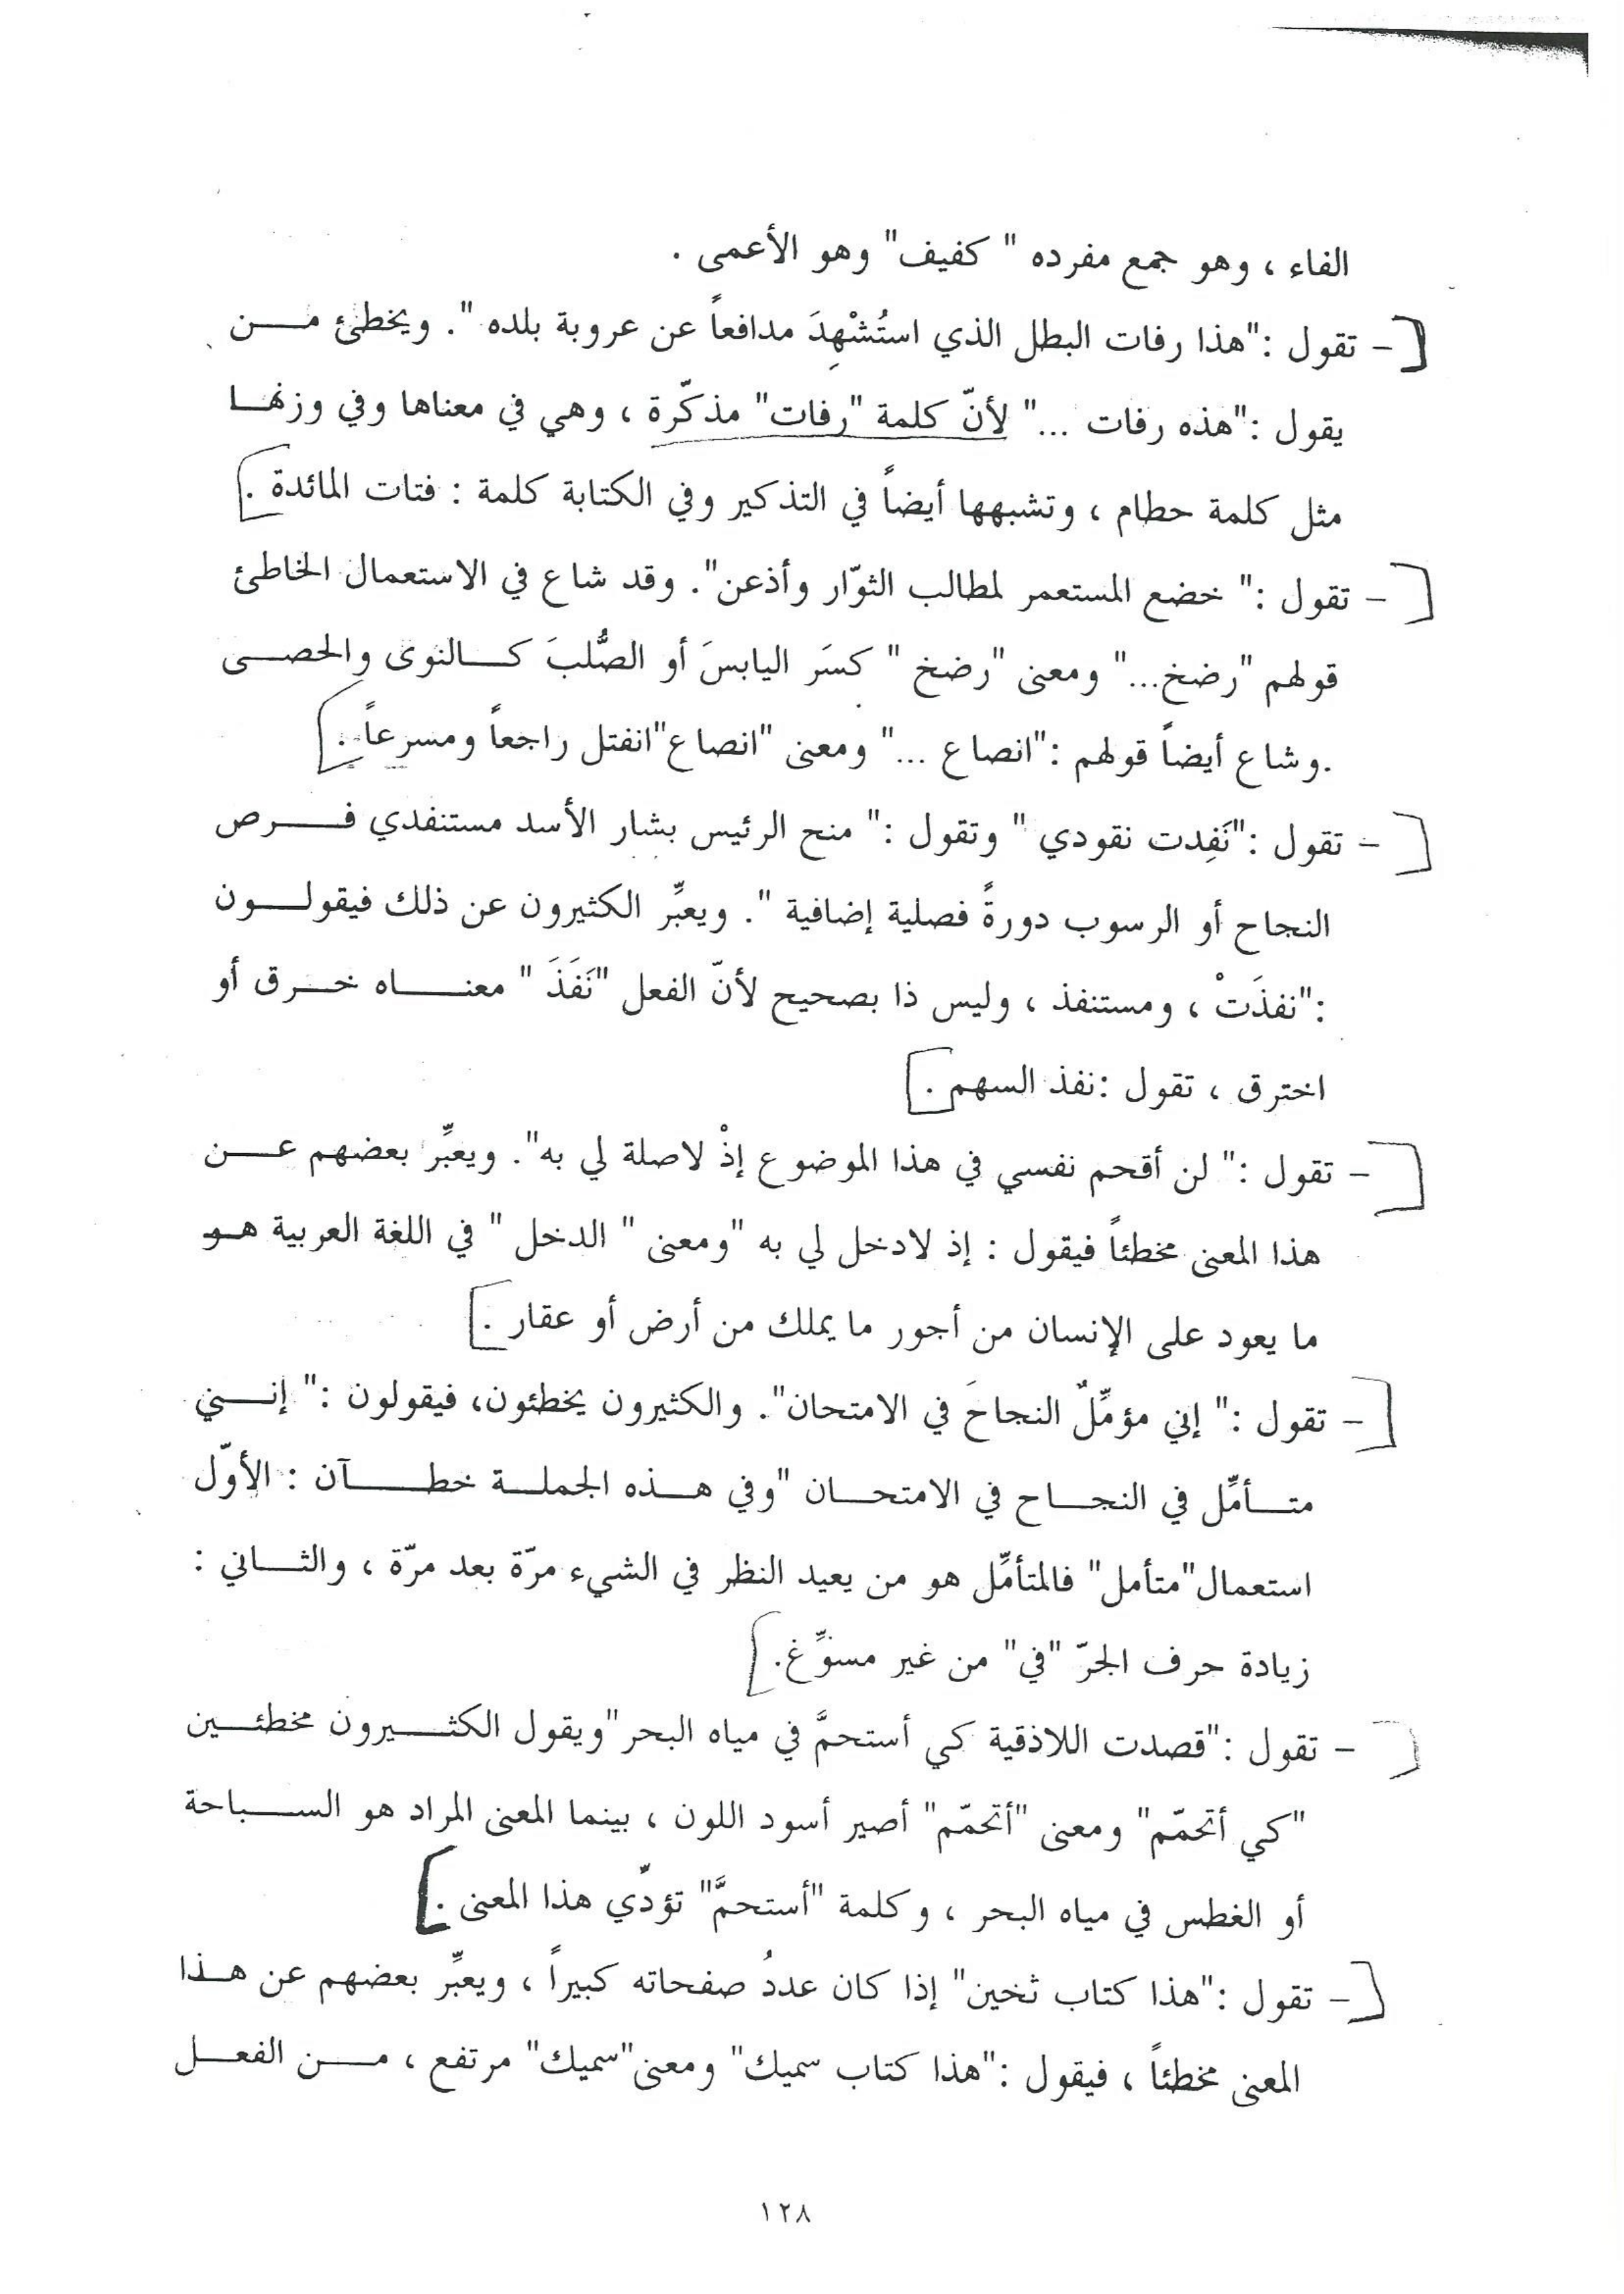 الفاء ، وهو جمع مفرده " كفيف" وهو الأعمى .
– تقول :"هذا رفات البطل الذي استُشْهِدَ مدافعاً عن عروبة بلده ". ويخطئ من
يقول :"هذه رفات ..." لأنّ كلمة "رفات" مذكّرة ، وهي في معناها وفي وزنها
مثل كلمة حطام ، وتشبهها أيضاً في التذكير وفي الكتابة كلمة : فتات المائدة .
– تقول :" خضع المستعمر لمطالب الثوّار وأذعن". وقد شاع في الاستعمال الخاطئ
قولهم "رضخ..." ومعنى "رضخ " كسَر اليابسَ أو الصُّلبَ كالنوى والحصى
.وشاع أيضاً قولهم :"انصاع ..." ومعنى "انصاع"انفتل راجعاً ومسرعاً .
– تقول :"نَفِدت نقودي " وتقول :" منح الرئيس بشار الأسد مستنفدي فرص
النجاح أو الرسوب دورةً فصلية إضافية ". ويعبِّر الكثيرون عن ذلك فيقولون
:"نفذَتْ ، ومستنفذ ، وليس ذا بصحيح لأنّ الفعل "نَفَذَ " معناه خرق أو
اخترق ، تقول :نفذ السهم .
– تقول :" لن أقحم نفسي في هذا الموضوع إذْ لاصلة لي به". ويعبِّر بعضهم عن
هذا المعنى مخطئاً فيقول : إذ لادخل لي به "ومعنى " الدخل " في اللغة العربية هو
ما يعود على الإنسان من أجور ما يملك من أرض أو عقار .
– تقول :" إني مؤمِّلٌ النجاحَ في الامتحان". والكثيرون يخطئون، فيقولون :" إنني
متأمِّل في النجاح في الامتحان "وفي هذه الجملة خطآن : الأوّل
استعمال"متأمل" فالمتأمِّل هو من يعيد النظر في الشيء مرّة بعد مرّة ، والثاني :
زيادة حرف الجرّ "في" من غير مسوِّغ.
– تقول :"قصدت اللاذقية كي أستحمَّ في مياه البحر"ويقول الكثيرون مخطئين
"كي أتحمّم" ومعنى "أتحمّم" أصير أسود اللون ، بينما المعنى المراد هو السباحة
أو الغطس في مياه البحر ، وكلمة "أستحمَّ" تؤدّي هذا المعنى .
– تقول :"هذا كتاب ثخين" إذا كان عددُ صفحاته كبيراً ، ويعبِّر بعضهم عن هذا
المعنى مخطئاً ، فيقول :"هذا كتاب سميك" ومعنى"سميك" مرتفع ، من الفعل
١٢٨